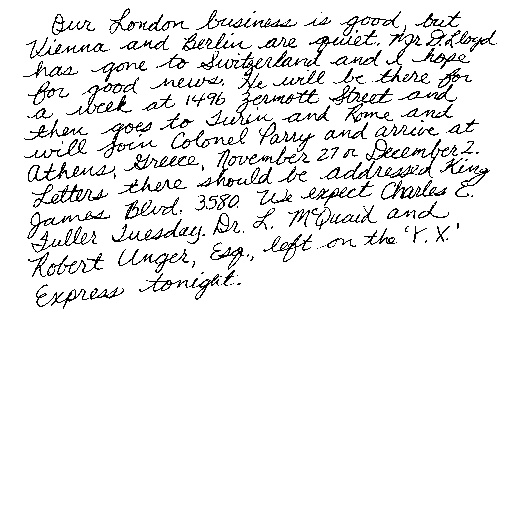 Our London business is good, but
Vienna and Berlin are quiet. Mr. D. Lloyd
has gone to Switzerland and I hope
for good news. He will be there for
a week at 1496 Zermott Street and
then goes to Turin and Rome and
will join Colonel Parry and arrive at
Athens, Greece, November 27 or December 2.
Letters there should be addressed King
James Blvd. 3580. We expect Charles E.
Fuller Tuesday. Dr. L. McQuaid and
Robert Unger, Esq., left on the 'Y.X.'
Express tonight.